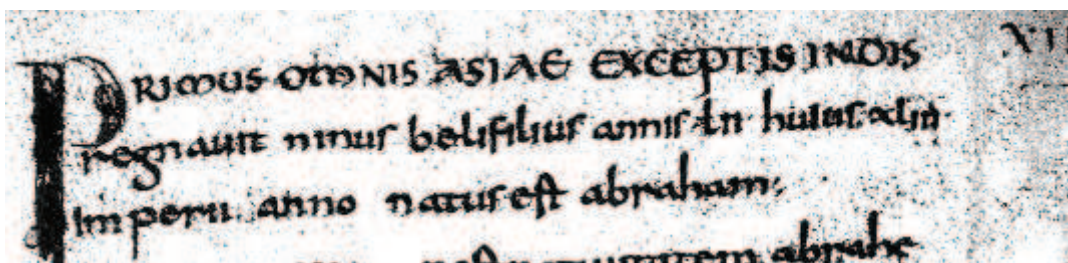 PRIMUS OMNIS ASIAE EXCEPTIS INDIS
regnauit ninus beli filius annis lii huius xliii
Imperii anno natus est abraham
natiuitatem abrahe